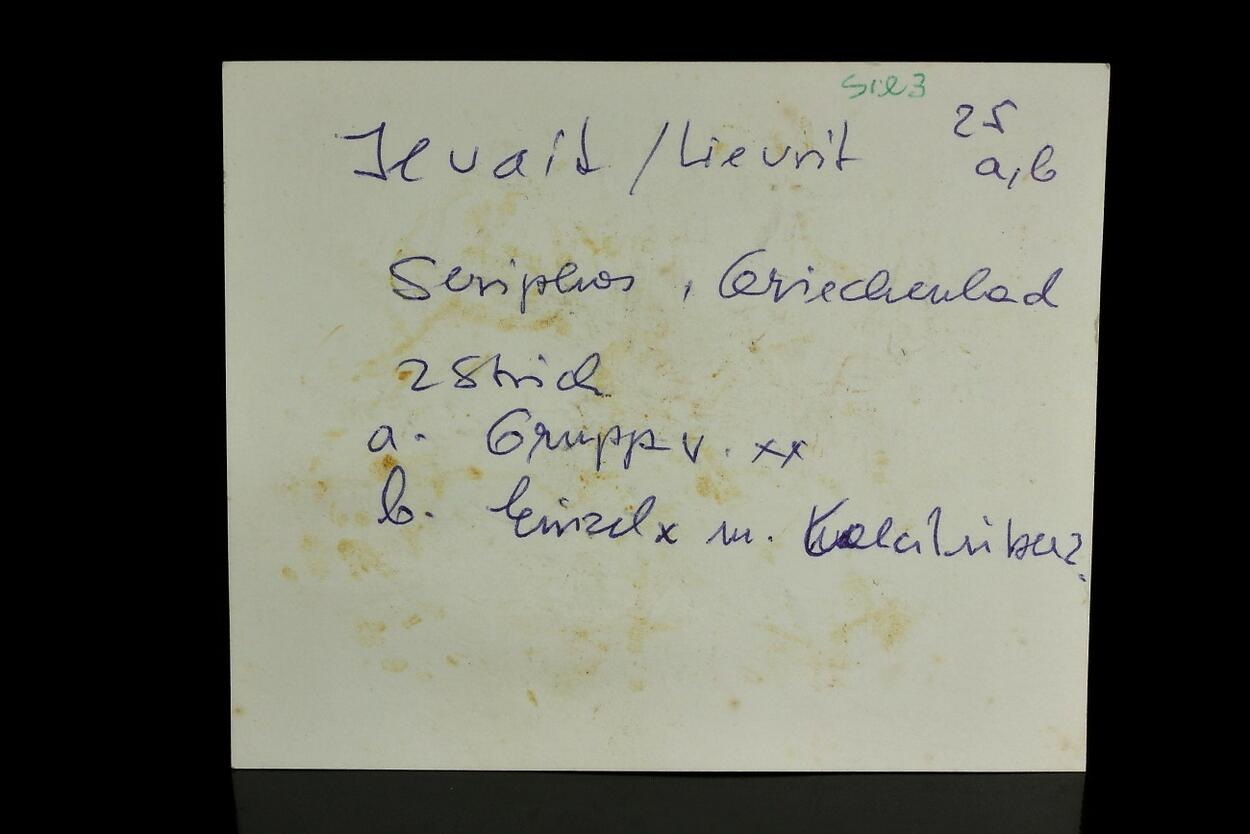 Sil3
25
a,b
Ilvait / Lievrit
Seriphos, Griechenlad
2 Stück
a. Grupp v. xx
b. Einzelx m. Kalcitüberz.